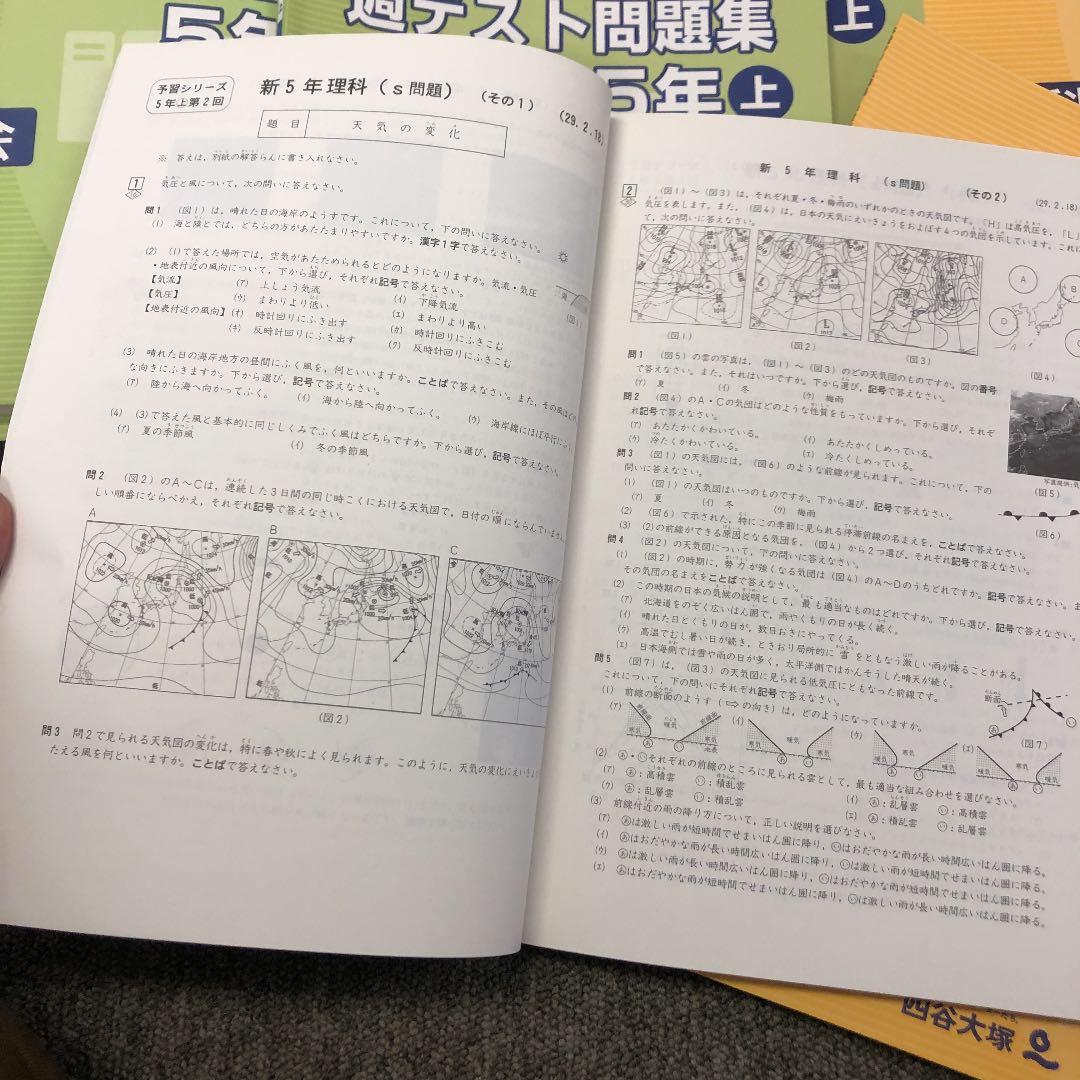 5年
週テスト問題集
上
5年上
会
予習シリーズ
5年上第2回
新5年理科(s問題)(その1)
(29.2.18)
題目 天気の変化
※ 答えは,別紙の解答らんに書き入れなさい。
1 気圧と風について,次の問いに答えなさい。
問1 (図1)は,晴れた日の海岸のようすです。これについて,下の問いに答えなさい。
(1) 海と陸とでは,どちらの方があたたまりやすいですか。漢字1字で答えなさい。
(2) (1)で答えた場所では,空気があたためられるとどのようになりますか。気流・気圧
・地表付近の風向について,下から選び,それぞれ記号で答えなさい。
【気流】 (ア) 上しょう気流 (イ) 下降気流
【気圧】 (ウ) まわりより低い (エ) まわりより高い
【地表付近の風向】(オ) 時計回りにふき出す (カ) 時計回りにふきこむ
(キ) 反時計回りにふき出す (ク) 反時計回りにふきこむ
海
(図1)
(3) 晴れた日の海岸地方の昼間にふく風を,何といいますか。ことばで答えなさい。また,その風はど
な向きにふきますか。下から選び,記号で答えなさい。
(ア) 陸から海へ向かってふく。 (イ) 海から陸へ向かってふく。 (ウ) 海岸線にほぼ平行に
(4) (3)で答えた風と基本的に同じしくみでふく風はどちらですか。下から選び,記号で答えなさい。
(ア) 夏の季節風 (イ) 冬の季節風
問2 (図2)のA~Cは,連続した3日間の同じ時こくにおける天気図で,日付の順にならんでいません。
しい順番にならべかえ,それぞれ記号で答えなさい。
A
B
C
(図2)
問3 問2で見られる天気図の変化は,特に春や秋によく見られます。このように,天気の変化にえいきょ
たえる風を何といいますか。ことばで答えなさい。
新5年理科(s問題)
(その2)
(29.2.18)
2 (図1)~(図3)は,それぞれ夏・冬・梅雨のいずれかのときの天気図です。「H」は高気圧を,「L」
気圧を表します。また,(図4)は,日本の天気にえいきょうをおよぼす4つの気団を示しています。これに
て,次の問いに答えなさい。
A
C
D
(図1)
(図2)
(図3)
(図4)
問1 (図5)の雲の写真は,(図1)~(図3)のどの天気図のものですか。図の番号
で答えなさい。また,それはいつですか。下から選び,記号で答えなさい。
(ア) 夏 (イ) 冬 (ウ) 梅雨
問2 (図4)のA・Cの気団はどのような性質をもっていますか。下から選び,それぞ
れ記号で答えなさい。
(ア) あたたかくかわいている。 (イ) あたたかくしめっている。
(ウ) 冷たくかわいている。 (エ) 冷たくしめっている。
写真提供:気
(図5)
問3 (図1)の天気図には,(図6)のような前線が見られます。これについて,下の
問いに答えなさい。
(1) (図1)の天気図はいつのものですか。下から選び,記号で答えなさい。
(ア) 夏 (イ) 冬 (ウ) 梅雨
(図6)
(2) (図6)で示された,特にこの季節に見られる停滞前線の名まえを,ことばで答えなさい。
(3) (2)の前線ができる原因となる気団を,(図4)から2つ選び,それぞれ記号で答えなさい。
問4 (図2)の天気図について,下の問いに答えなさい。
(1) (図2)の時期に,勢力が強くなる気団は(図4)のA~Dのうちどれですか。記号で答えなさい。ま
その気団の名まえをことばで答えなさい。
(2) この時期の日本の気候の説明として,最も適当なものはどれですか。下から選び,記号で答えなさい。
(ア) 北海道をのぞく広いはん囲で,雨やくもりの日が長く続く。
(イ) 晴れた日とくもりの日が,数日おきにやってくる。
(ウ) 高温でむし暑い日が続き,ときおり局所的に雷をともなう激しい雨が降ることがある。
(エ) 日本海側では雪や雨の日が多く,太平洋側ではかんそうした晴天が続く。
問5 (図7)は,(図3)の天気図に見られる低気圧にともなった前線です。
これについて,下の問いにそれぞれ記号で答えなさい。
(1) 前線の断面のようす(⇨の向き)は,どのようになっていますか。
断面
あ
い
(図7)
(ア) 寒気 暖気 寒気 地表 あ い
(イ) 寒気 暖気 寒気 あ い
(ウ) 暖気 寒気 暖気 あ い
暖気 寒気 暖気 あ い
(2) あ・いそれぞれの前線のところに見られる雲として,最も適当な組み合わせを選びなさい。
(ア) あ:高積雲 い:積乱雲 (イ) あ:乱層雲 い:高積雲
(ウ) あ:乱層雲 い:積乱雲 (エ) あ:積乱雲 い:乱層雲
(3) 前線付近の雨の降り方について,正しい説明を選びなさい。
(ア) あは激しい雨が短時間でせまいはん囲に降り,いはおだやかな雨が長い時間広いはん囲に降る。
(イ) あはおだやかな雨が長い時間広いはん囲に降り,いは激しい雨が短時間でせまいはん囲に降る。
(ウ) あは激しい雨が長い時間広いはん囲に降り,いはおだやかな雨が短時間でせまいはん囲に降る。
(エ) あはおだやかな雨が短時間でせまいはん囲に降り,いは激しい雨が長い時間広いはん囲に降る。
四谷大塚